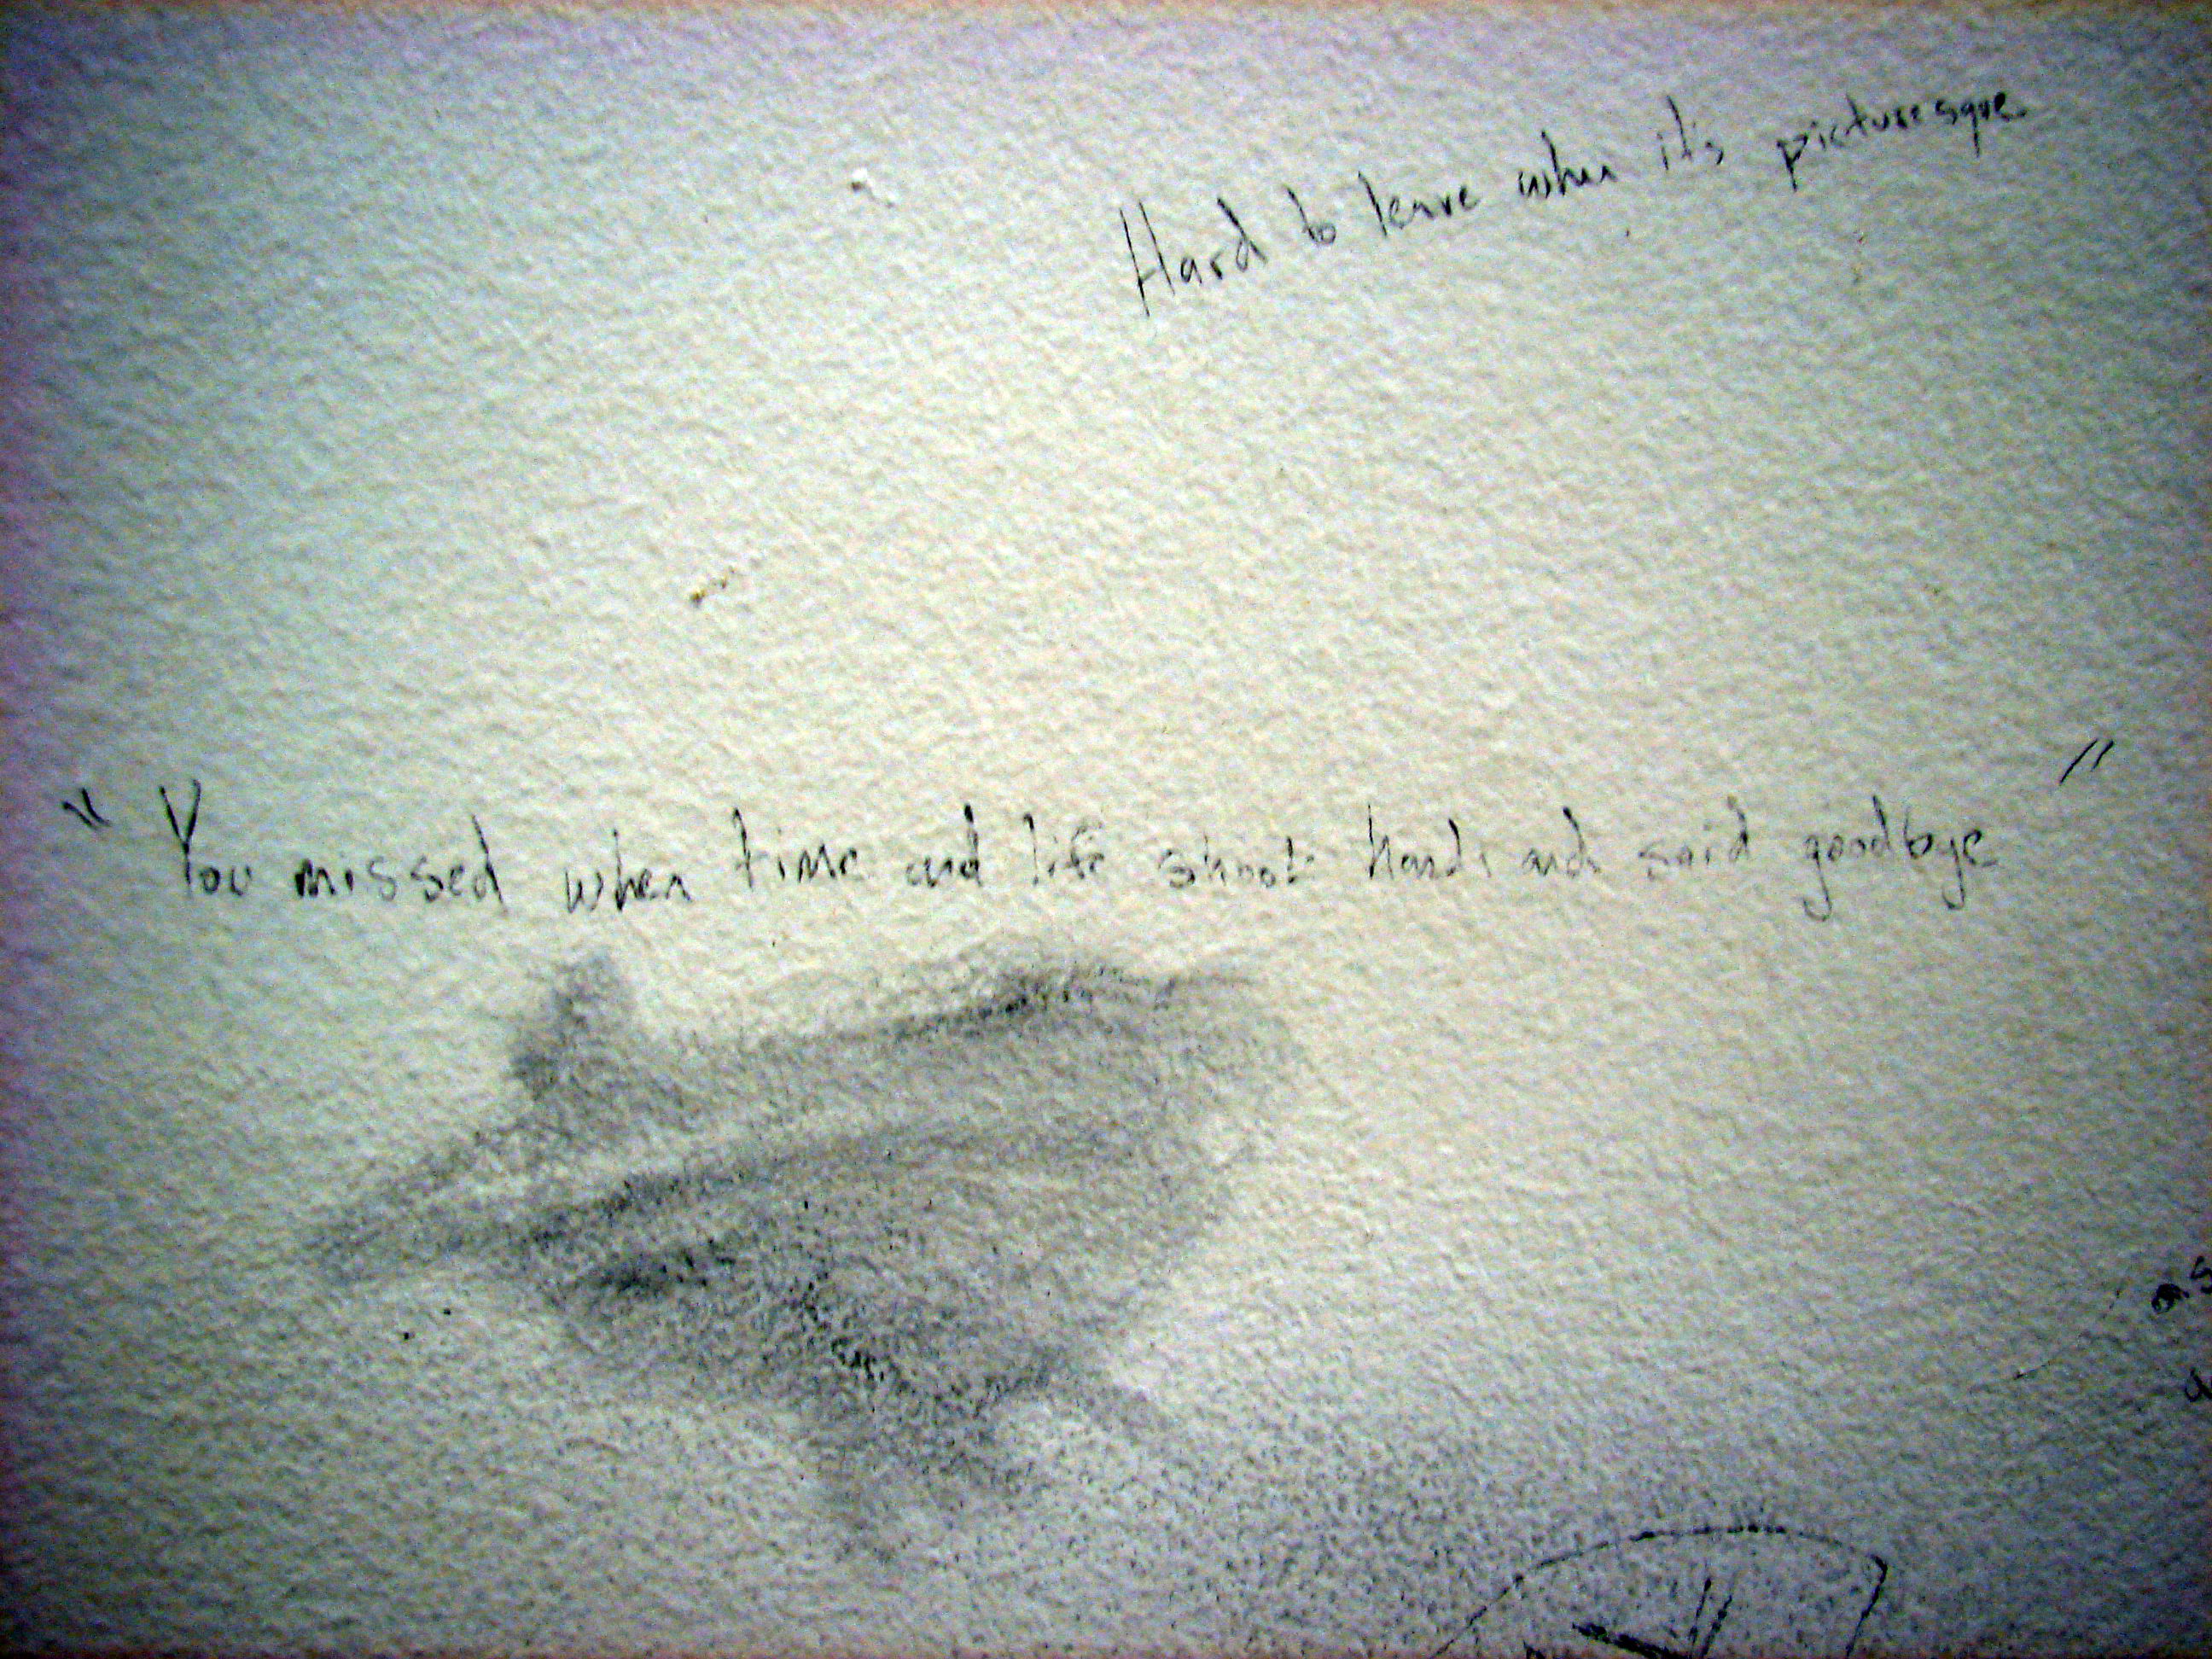 Hard to leave when it's picturesque
"You missed when time and life shook hands and said goodbye"
as